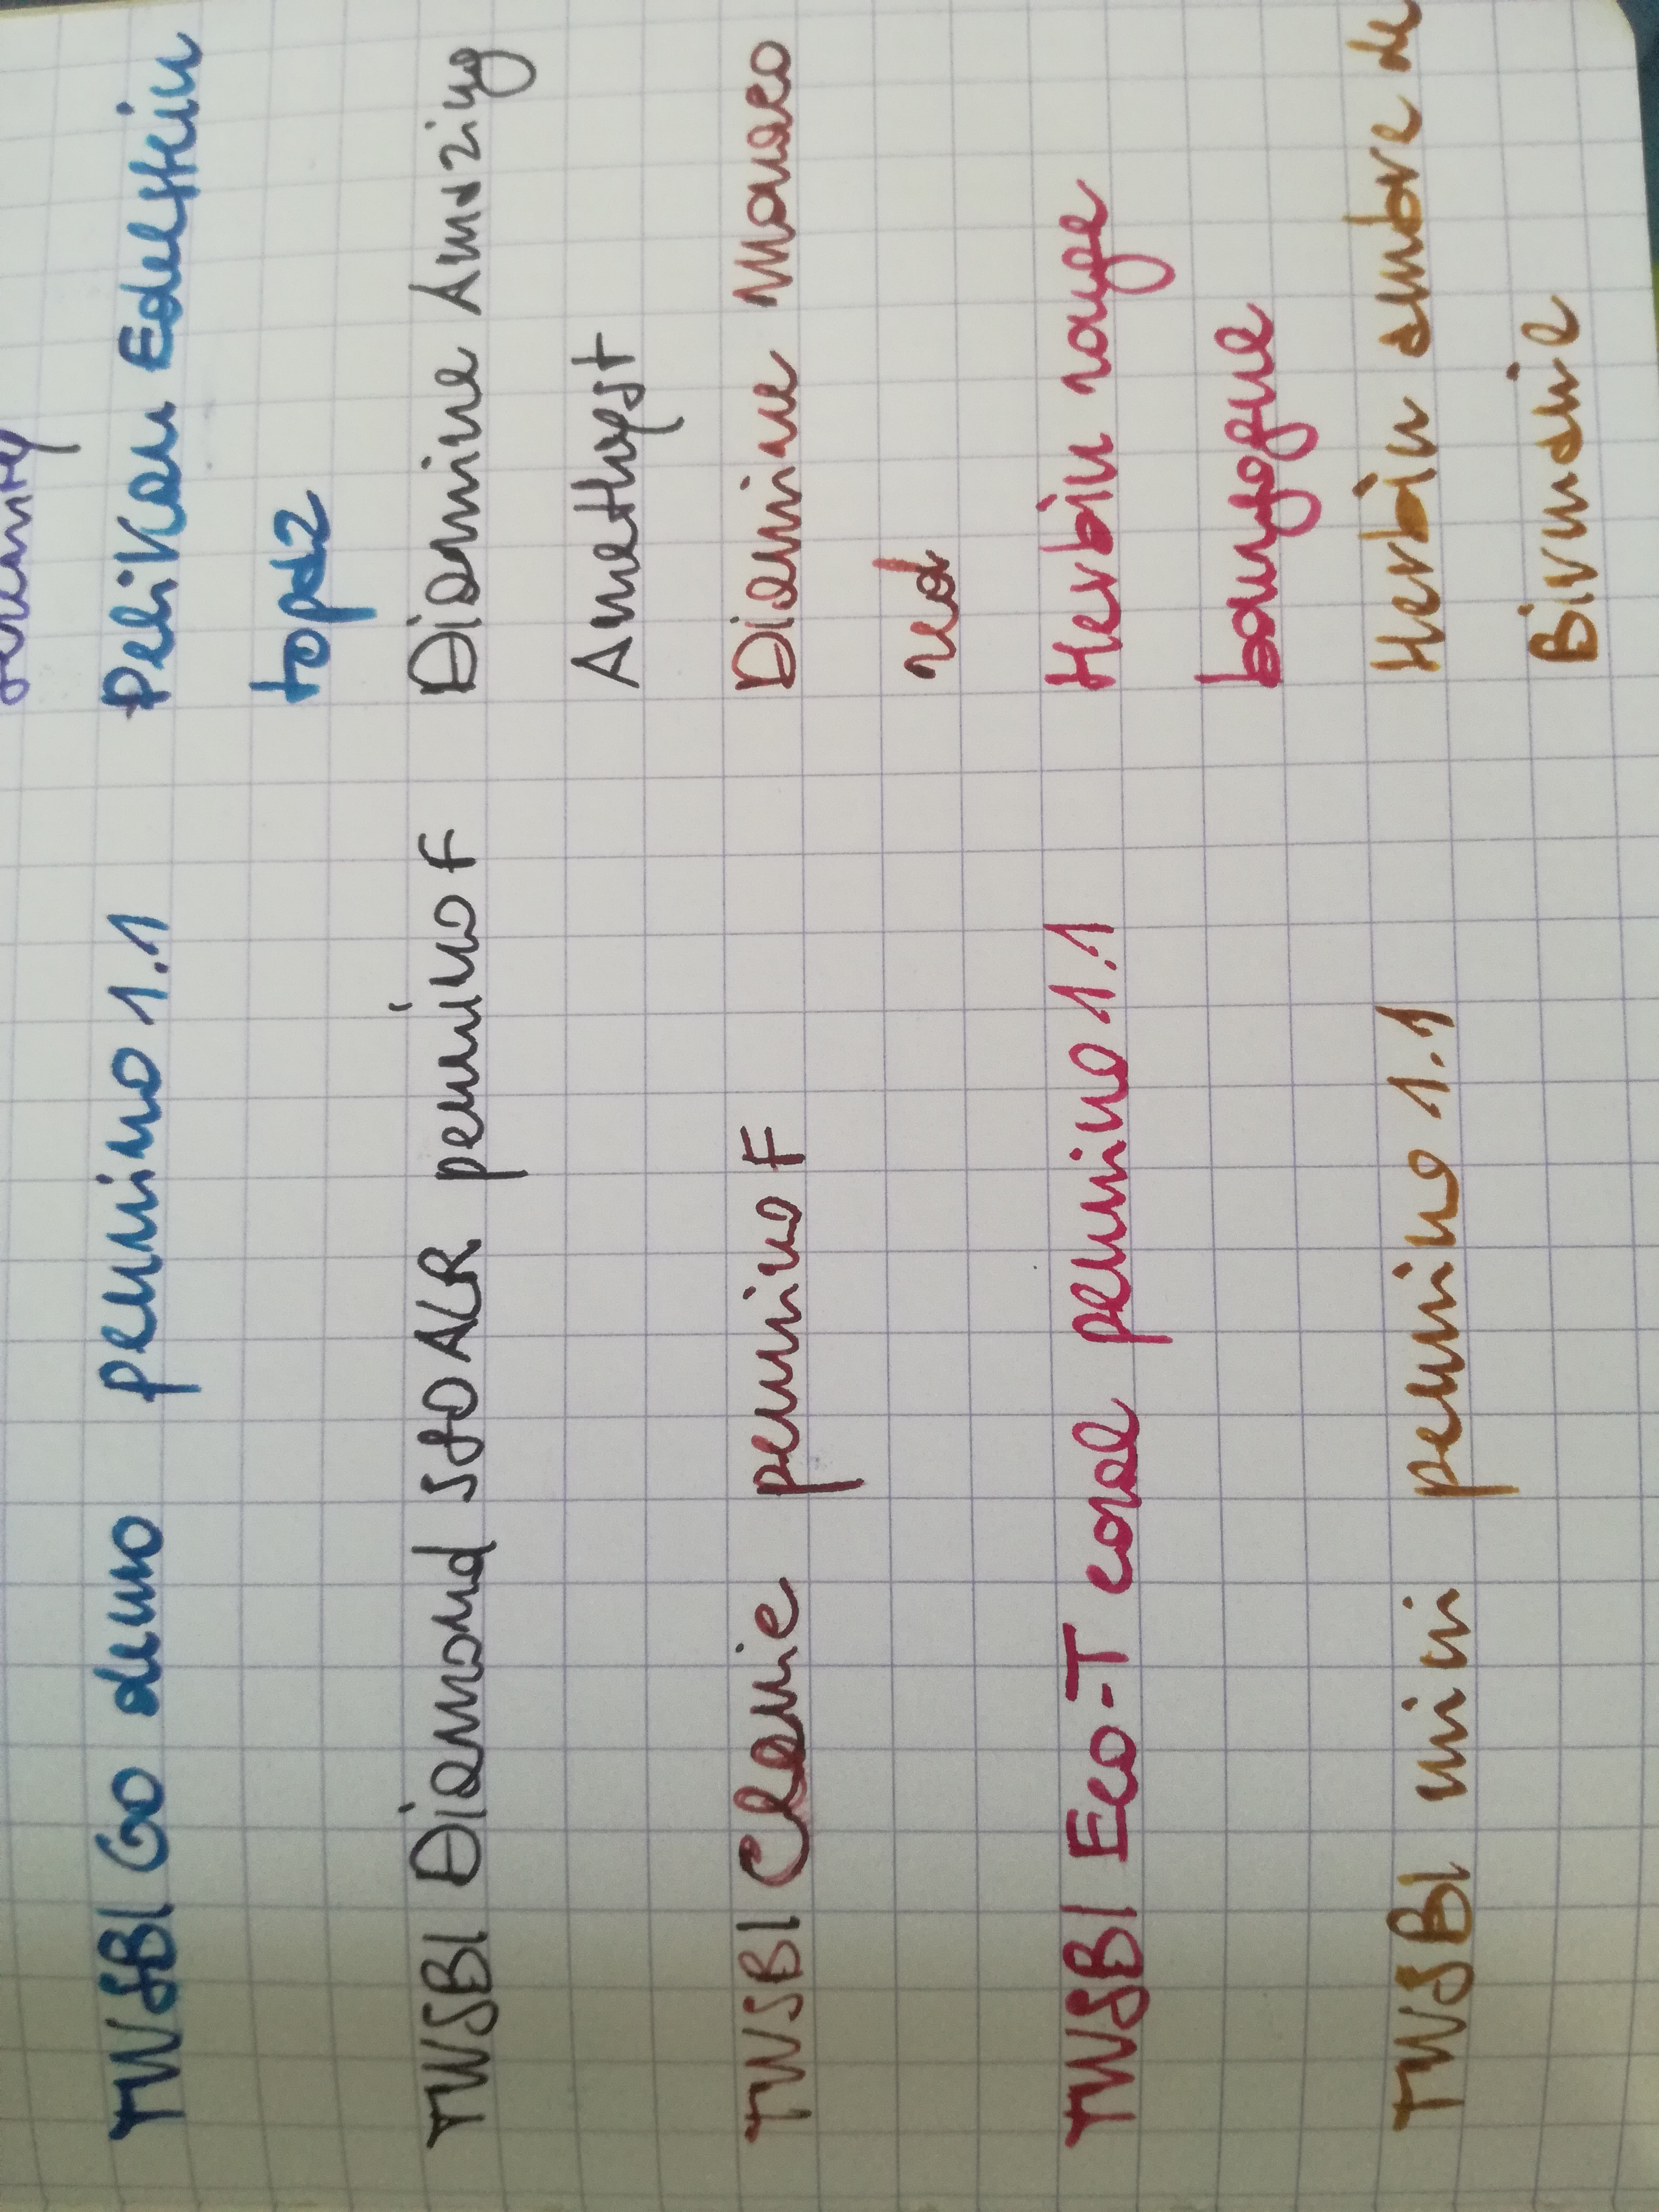 TWSBI Go demo pennino 1.1 Pelikan Edelstein
topaz
TWSBI Diamond 580ALR pennino F Diamine Amazing
Amethyst
TWSBI Classic pennino F Diamine Monaco
red
TWSBI Eco-T coral pennino 1.1 Herbin rouge
bourgogne
TWSBI mini pennino 1.1 Herbin ambre de
Birmanie